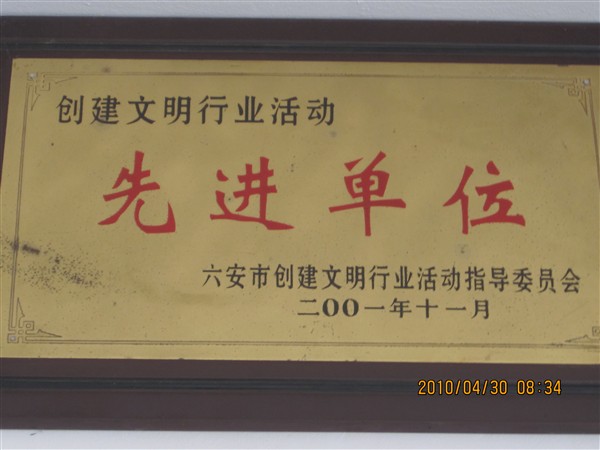 创建文明行业活动
先进单位
六安市创建文明行业活动指导委员会
二OO一年十一月
2010/04/30 08:34